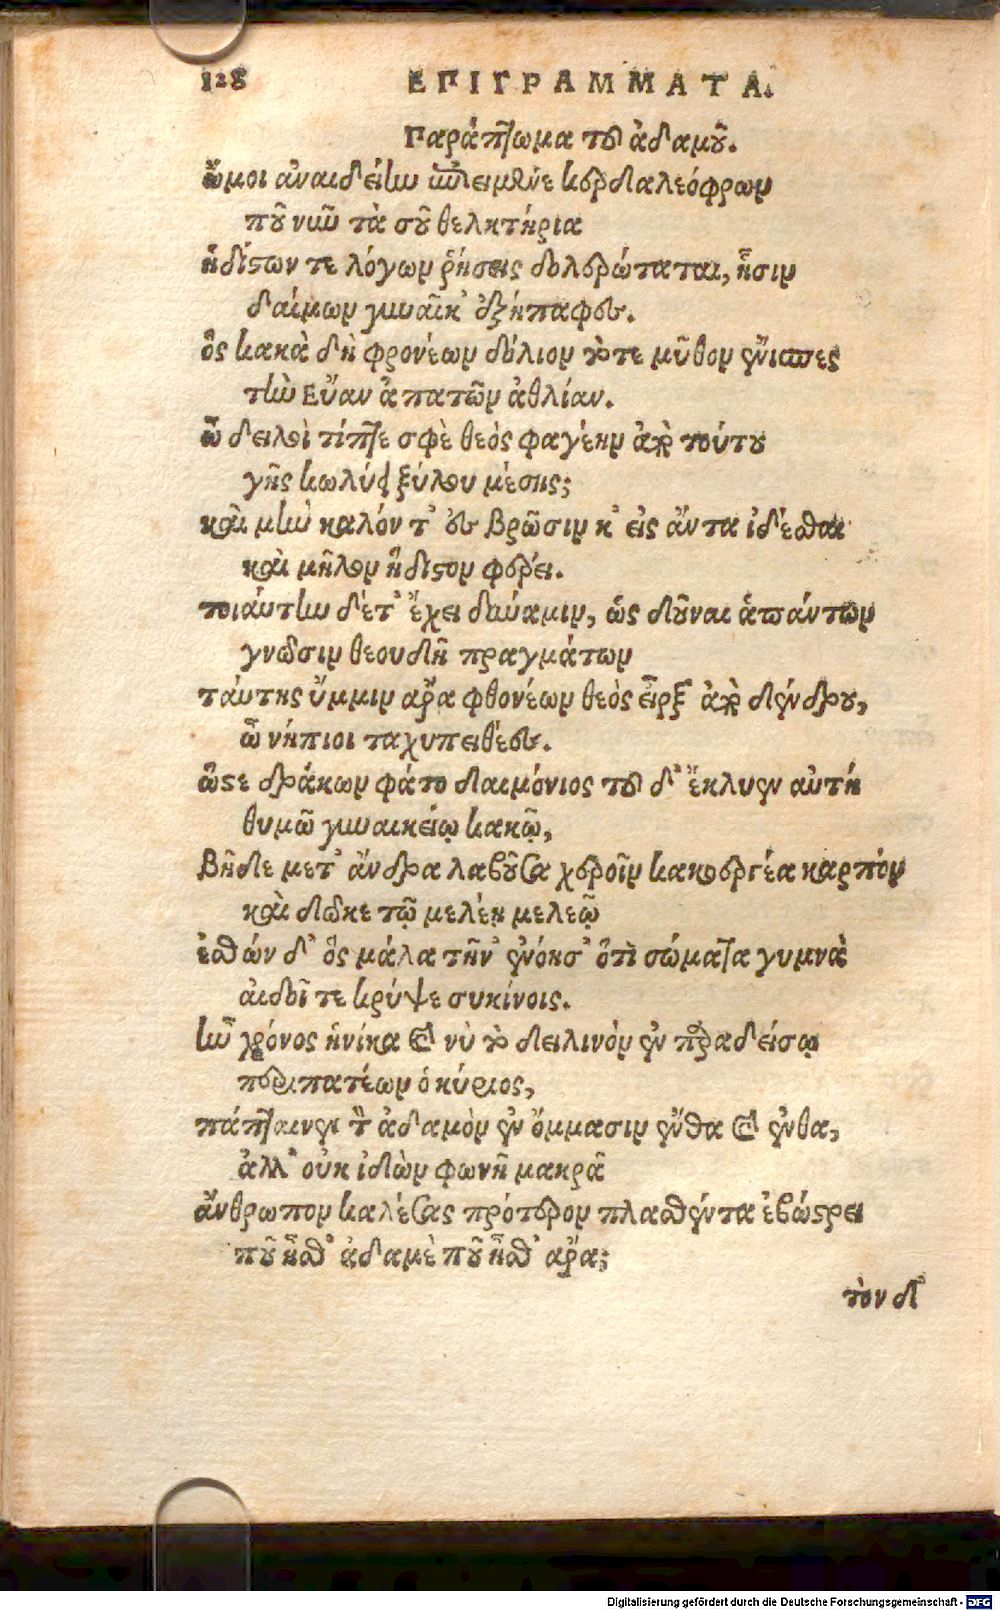 128 ΕΠΙΓΡΑΜΜΑΤΑ.
Παράπτωμα τοῦ ἀδαμοῦ.
ὤμοι ἀναιδείην κερδαλεόφρων
ποῦ νῦν τὰ σοῦ θελητήρια
ἡδίστων τε λόγων ῥήσεις δολερώταται, ᾗσιν
δαίμων γυναῖκ' ἐξήπαφεν.
ὃς κακὰ δὴ φρονέων δόλιον τότε μῦθον ἔνισπες
τὴν Εὔαν ἀπατῶν ἀθλίαν.
ὦ δειλοὶ τίπτε σφὲ θεὸς φαγέειν ἀπὸ τούτου
γῆς κωλύει ξύλου μέσης;
καὶ μὴν καλόν τ' ἐν βρῶσιν κ' εἰς ἄντα ἰδέσθαι
καὶ μῆλον ἥδιστον φέρει.
τοιαύτην δέ τ' ἔχει δύναμιν, ὡς δοῦναι ἁπάντων
γνῶσιν θεουδῆ πραγμάτων
ταύτης ὔμμιν ἄρα φθονέων θεὸς εἶρξ' ἀπὸ δένδρου,
ὦ νήπιοι ταχυπειθέες.
ὥστε δράκων φάτο δαιμόνιος τοῦ δ' ἔκλυεν αὐτὴ
θυμῷ γυναικείῳ κακῷ,
βῆδε μετ' ἄνδρα λαβοῦσα χεροῖν κακοεργέα καρπὸν
καὶ δῶκε τῷ μελέῃ μελεῷ
ἐσθών δ' ὃς μάλα τῆν' ἐνόησ' ὅτι σώματα γυμνὰ
αἰδοῖ τε κρύψε συκίνοις.
ἦν χρόνος ἡνίκα καὶ νὺ τὸ δειλινὸν ἐν παραδείσῳ
περιπατέων ὁ κύριος,
πάπταινεν τὸν ἀδαμὸν ἐν ὄμμασιν ἔνθα καὶ ἔνθα,
ἀλλ' οὐκ ἰδὼν φωνῇ μακρᾷ
ἄνθρωπον καλέσας πρότερον πλασθέντα ἐβώστρει
ποῦ ἦσθ' ἀδαμὲ ποῦ ἦσθ' ἄρα;
τὸν δ'
Digitalisierung gefördert durch die Deutsche Forschungsgemeinschaft - DFG